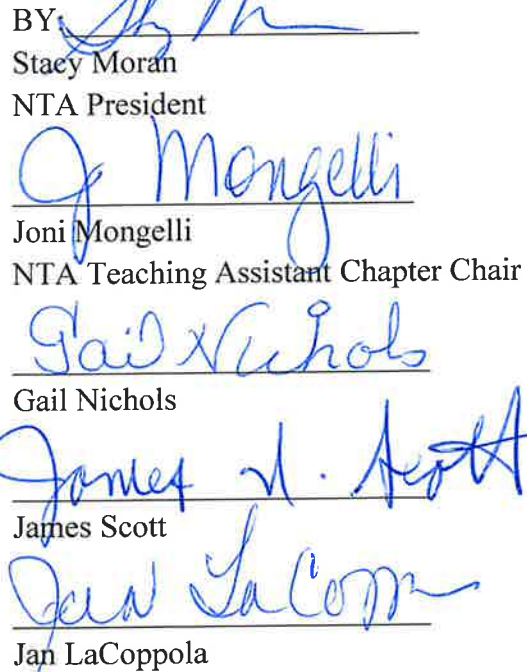 BY:
Stacy Moran
NTA President
J Mongelli
Joni Mongelli
NTA Teaching Assistant Chapter Chair
Gail Nichols
Gail Nichols
James N. Scott
James Scott
Jan LaCopp
Jan LaCoppola